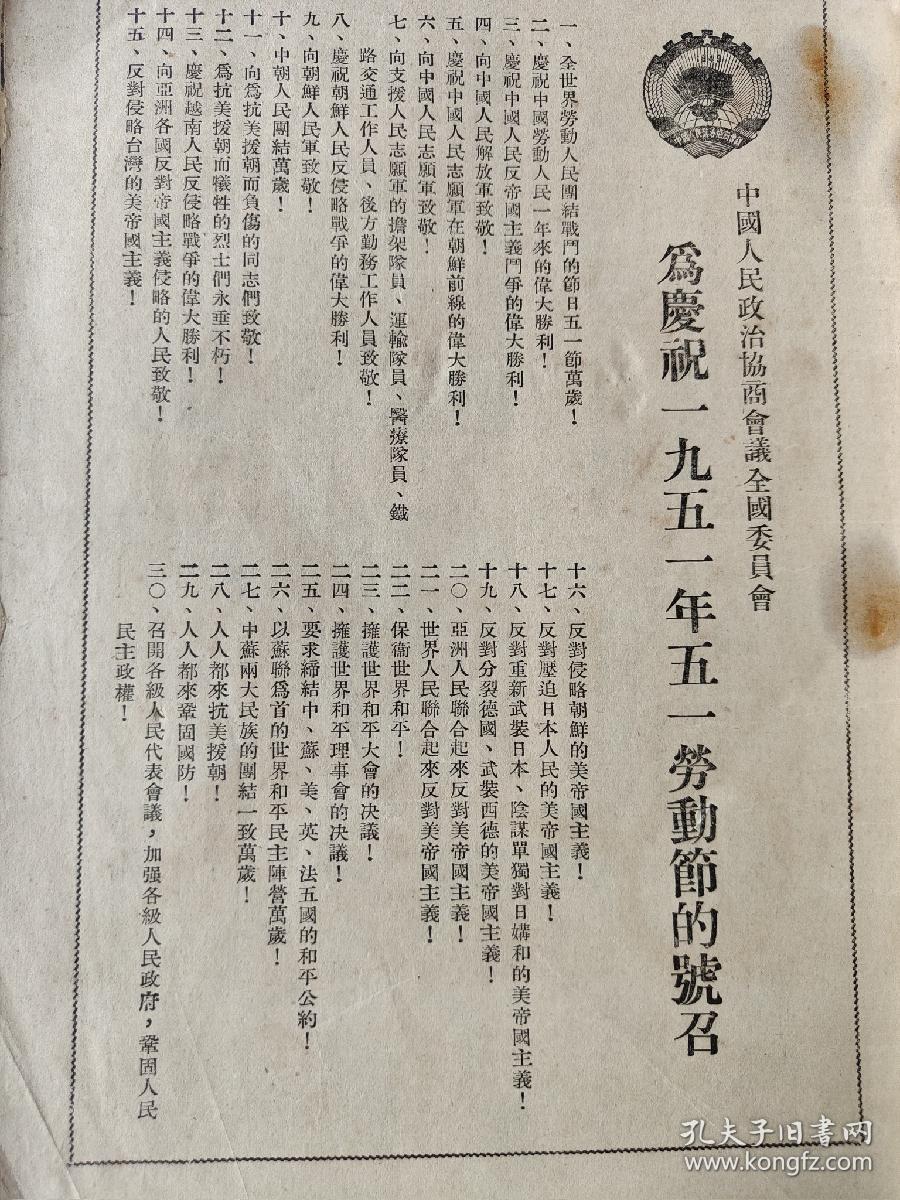 中國人民政治協商會議全國委員會
爲慶祝一九五一年五一勞動節的號召
一、全世界勞動人民團結戰鬥的節日五一節萬歲！
二、慶祝中國勞動人民一年來的偉大勝利！
三、慶祝中國人民反帝國主義鬥爭的偉大勝利！
四、向中國人民解放軍致敬！
五、慶祝中國人民志願軍在朝鮮前線的偉大勝利！
六、向中國人民志願軍致敬！
七、向支援人民志願軍的擔架隊員、運輸隊員、醫療隊員、鐵
路交通工作人員、後方勤務工作人員致敬！
八、慶祝朝鮮人民反侵略戰爭的偉大勝利！
九、向朝鮮人民軍致敬！
十、中朝人民團結萬歲！
十一、向爲抗美援朝而負傷的同志們致敬！
十二、爲抗美援朝而犧牲的烈士們永垂不朽！
十三、慶祝越南人民反侵略戰爭的偉大勝利！
十四、向亞洲各國反對帝國主義侵略的人民致敬！
十五、反對侵略台灣的美帝國主義！
十六、反對侵略朝鮮的美帝國主義！
十七、反對壓迫日本人民的美帝國主義！
十八、反對重新武裝日本、陰謀單獨對日媾和的美帝國主義！
十九、反對分裂德國、武裝西德的美帝國主義！
二〇、亞洲人民聯合起來反對美帝國主義！
二一、世界人民聯合起來反對美帝國主義！
二二、保衞世界和平！
二三、擁護世界和平大會的决議！
二四、擁護世界和平理事會的决議！
二五、要求締結中、蘇、美、英、法五國的和平公約！
二六、以蘇聯爲首的世界和平民主陣營萬歲！
二七、中蘇兩大民族的團結一致萬歲！
二八、人人都來抗美援朝！
二九、人人都來鞏固國防！
三〇、召開各級人民代表會議，加强各級人民政府，鞏固人民
民主政權！
孔夫子旧书网
www.kongfz.com